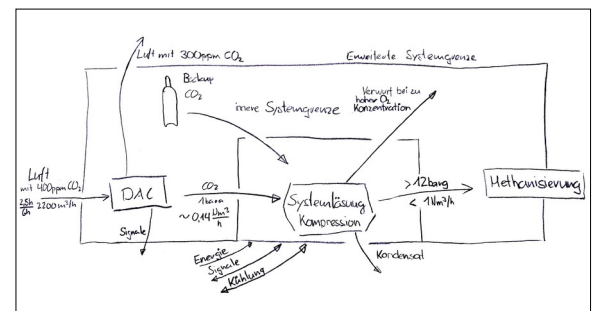 Luft mit 300ppm CO₂
Erweiterte Systemgrenze
Backup
CO₂
innere Systemgrenze
Verwurf bei zu
hoher O₂
Konzentration
Luft
mit 400ppm CO₂
2200 m³/h
DAC
CO₂
1bara
~0,14 Nm³/h
Systemlösung
Kompression
> 12barg
< 1Nm³/h
Methanisierung
Signale
Energie
Signale
Kühlung
Kondensat